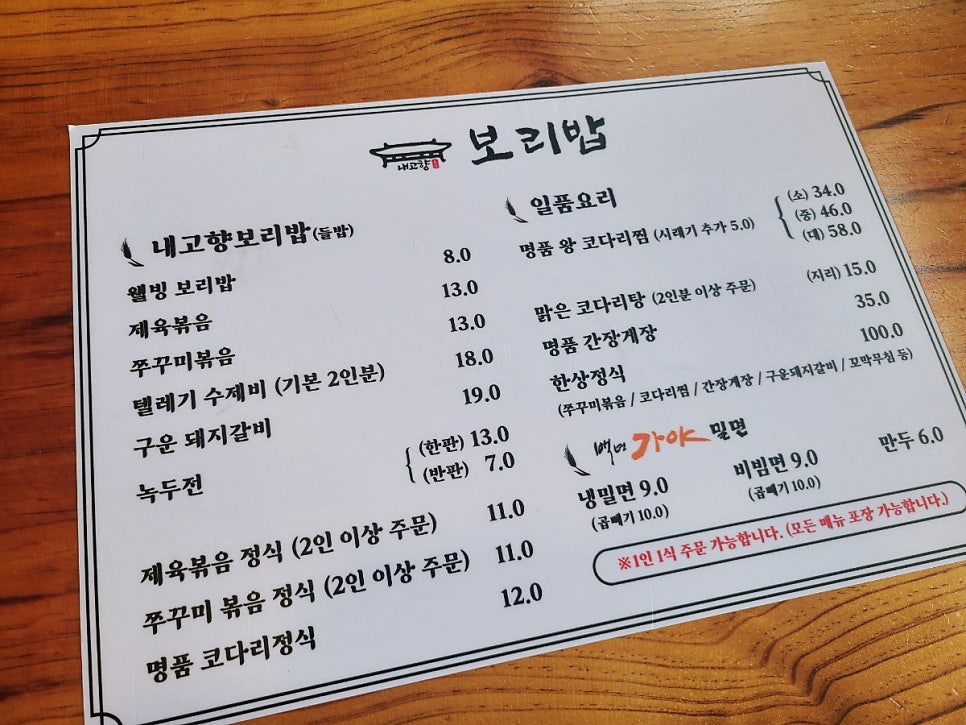 내고향
보리밥
내고향보리밥(들밥)
웰빙 보리밥 8.0
제육볶음 13.0
쭈꾸미볶음 13.0
텔레기 수제비 (기본 2인분) 18.0
구운 돼지갈비 19.0
녹두전 (한판) 13.0
(반판) 7.0
제육볶음 정식 (2인 이상 주문) 11.0
쭈꾸미 볶음 정식 (2인 이상 주문) 11.0
명품 코다리정식 12.0
일품요리
명품 왕 코다리찜 (시래기 추가 5.0) (소) 34.0
(중) 46.0
(대) 58.0
맑은 코다리탕 (2인분 이상 주문) (지리) 15.0
명품 간장게장 35.0
한상정식 100.0
(쭈꾸미볶음 / 코다리찜 / 간장게장 / 구운돼지갈비 / 꼬막무침 등)
백년 가야 밀면
냉밀면 9.0 비빔면 9.0 만두 6.0
(곱빼기 10.0) (곱빼기 10.0)
※1인 1식 주문 가능합니다. (모든 메뉴 포장 가능합니다.)